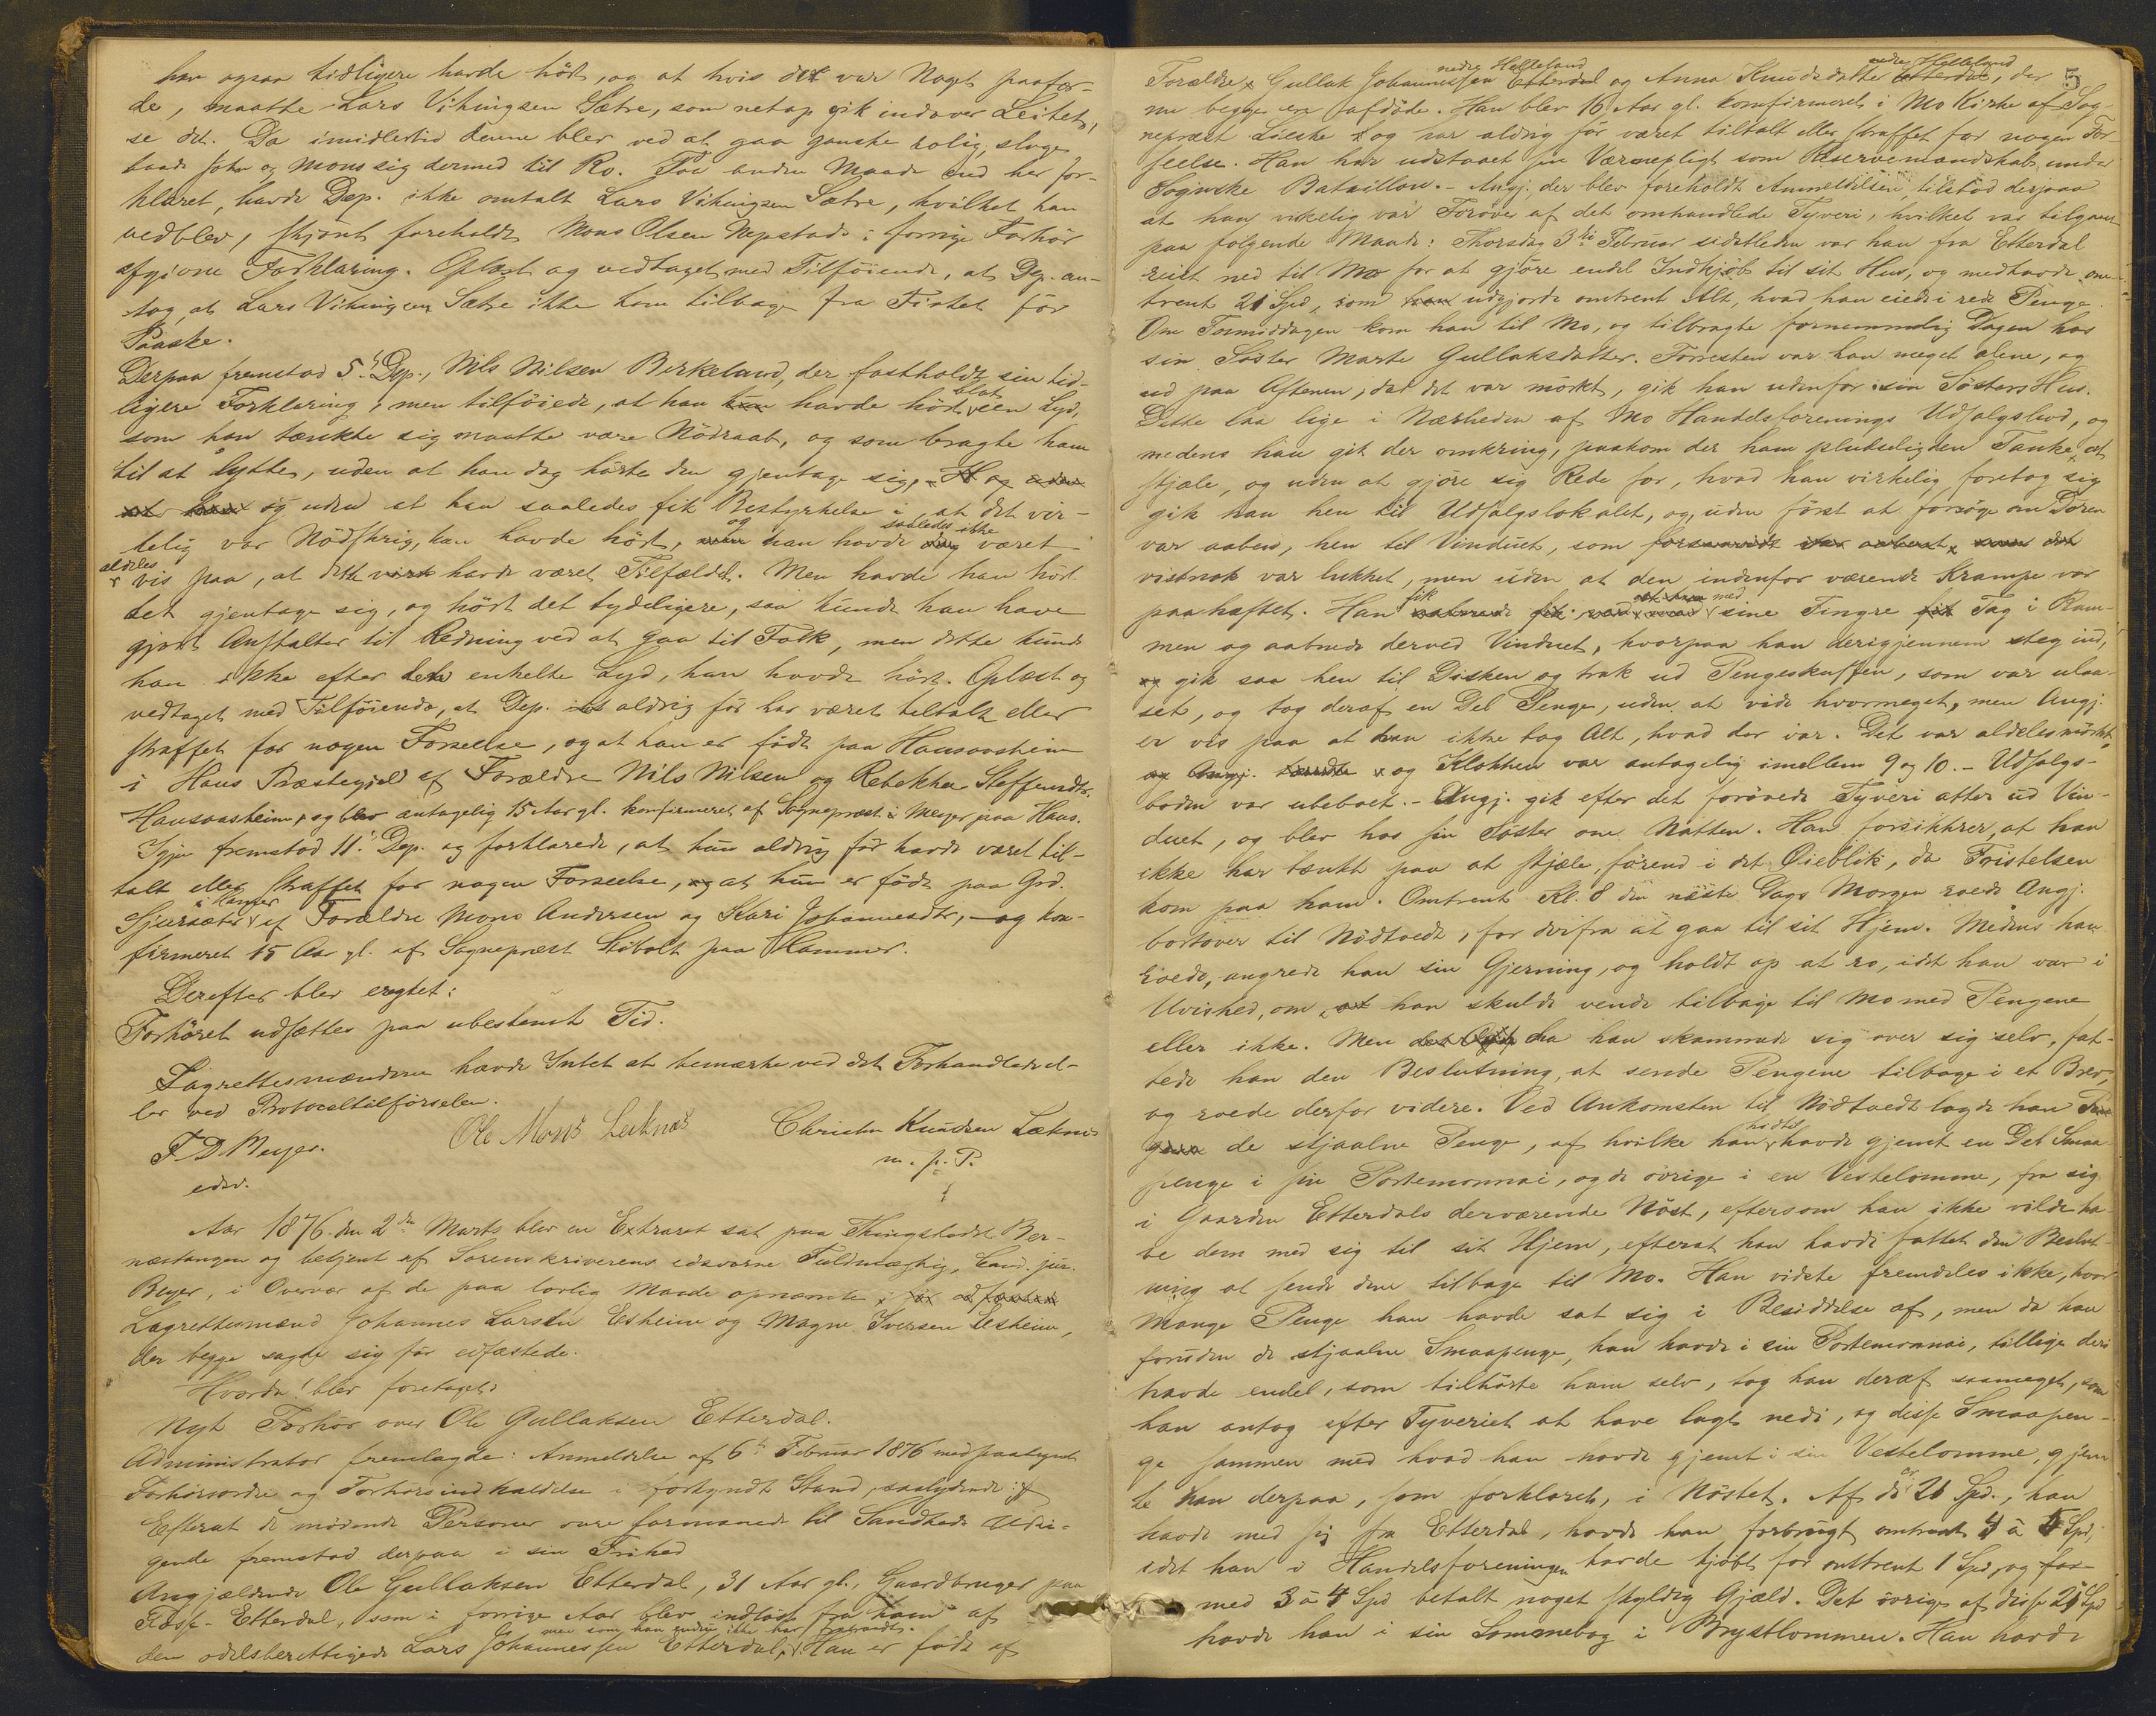 han ogsaa tidligere havde hört, og at hvis det var Noget paafær-
de, maatte Lars Vikingsen Sætre, som netop gik indover Leitet,
se det. Da imidlertid denne blev ved at gaa ganske rolig, sloge
baade John og Mons sig dermed til Ro. Paa anden Maade end her for-
klaret, havde Dep. ikke omtalt Lars Vikingsen Sætre, hvilket han
vedblev, skjønt foreholdt Mons Olsen Nepstads i forrige Forhör
afgivne Forklaring. Oplæst og vedtaget med Tilföiende, at Dep. an-
tog, at Lars Vikingsen Sætre ikke kom tilbage fra Fisket för
Paaske.
Derpaa fremstod 5. Dep., Nils Nilsen Birkeland, der fastholdt sin tid-
ligere Forklaring, men tilföiede, at han havde hört blot een Lyd,
som han tænkte sig maatte være Nödraab, og som bragte ham
til at lytte, uden at han dog hörte den gjentage sig,
og uden at han saaledes fik Bestyrkelse i, at det vir-
kelig var Nödskrig, han havde hört, og han havde saaledes ikke været
aldeles vis paa, at dette havde været Tilfældet. Men havde han hört
det gjentage sig, og hört det tydeligere, saa kunde han have
gjort Anstalter til Redning ved at gaa til Folk, men dette kunde
han ikke efter den enkelte Lyd, han havde hört. Oplæst og
vedtaget med Tilföiende, at Dep. aldrig för har været tiltalt eller
straffet for nogen Forseelse, og at han er födt paa Hansaasheim
i Haus Præstegjeld af Forældre Nils Nilsen og Rebekka Steffensdtr.
Hansaasheim, og blev antagelig 15 Aar gl. konfirmeret af Sognepræst Meyer paa Haus.
Igjen fremstod 11. Dep. og forklarede, at hun aldrig för havde været til-
talt eller straffet for nogen Forseelse, og at hun er födt paa Grd.
Gjersæter i Hammer af Forældre Mons Andersen og Kari Johannesdtr, og kon-
firmeret 15 Aar gl. af Sognepræst Stobolt paa Hammer.
Derefter blev eragtet:
Forhöret udsættes paa ubestemt Tid.
Lagrettesmændene havde Intet at bemærke ved det Forhandlede el-
ler ved Protocoltilförselen.
F. D. Beyer. Ole Mons Leiknes Christen Knudsen Leknes
edsv. m. p. P.
Aar 1876 den 2den Marts blev en Extraret sat paa Thingstedet Ber-
næstangen og betjent af Sorenskriverens edsvorne Fuldmægtig, Cand. jur.
Beyer, i Overvær af de paa lovlig Maade opnævnte
Lagrettesmænd Johannes Larsen Esheim og Magne Iversen Esheim,
der begge sagde sig för edfæstede.
Hvorda! blev foretaget:
Nyt Forhör over Ole Gullaksen Etterdal.
Administrator fremlagde: Anmeldelse af 6te Februar 1876 med paategnet
Forhörsordre og Forhörsindkaldelse i forkyndt Stand, saalydende:
Efterat de mödende Personer vare formanede til Sandheds Udsi-
gende fremstod derpaa i sin Frihed
Angjældende Ole Gullaksen Etterdal, 31 Aar gl., Gaardbruger paa
Fosse-Etterdal, som i forrige Aar blev indlöst fra ham af
den odelsberettigede Lars Johannessen Etterdal, men som han endnu ikke har fraveget. Han er födt af
5
Forældre Gullak Johannessen nedre Helleland og Anna Knudsdatter nedre Helleland, der
nu begge er afdöde. Han blev 16 Aar gl. konfirmeret i Mo Kirke af Sog-
nepræst Lieske og var aldrig för været tiltalt eller straffet for nogen For-
seelse. Han har udstaaet sin Værnepligt som Reservemandskab under
Sognske Bataillon. - Angj. der blev foreholdt Anmeldelsen, tilstod derpaa
at han virkelig var Foröver af det omhandlede Tyveri, hvilket var tilgaaet
paa fölgende Maade: Thorsdag 3die Februar sidstleden var han fra Etterdal
reist ned til Mo for at gjöre endel Indkjöb til sit Hus, og medhavde om-
trent 21 Spd, som udgjorde omtrent Alt, hvad han eiede i rede Penge.
Om Formiddagen kom han til Mo, og tilbragte fornemmelig Dagen hos
sin Söster Marte Gullaksdatter. Forresten var han meget alene, og
ud paa Aftenen, da det var mörkt, gik han udenfor sin Sösters Hus.
Dette laa lige i Nærheden af Mo Handelsforenings Udsalgsbod, og
medens han gik der omkring, paakom der ham pludseligden Tanke, at
stjæle, og uden at gjöre sig Rede for, hvad han virkelig foretog sig
gik han hen til Udsalgslokalet, og, uden först at forsöge om Dören
var aaben, hen til Vinduet, som
vistnok var lukket, men uden at den indenfor værende Krampe var
paahæftet. Han fik med sine Fingre Tag i Ram-
men og aabnede derved Vinduet, hvorpaa han derigjennem steg ind,
gik saa hen til Disken og trak ud Pengeskuffen, som var ulaa-
set, og tog deraf en Del Penge, uden at vide hvormeget, men Angj.
er vis paa at han ikke tog Alt, hvad der var. Det var aldeles mörkt,
og Klokken var antagelig imellem 9 og 10. - Udsalgs-
boden var ubeboet. - Angj. gik efter det forövede Tyveri atter ud Vin-
duet, og blev hos sin Söster om Natten. Han forsikkrer, at han
ikke har tænkt paa at stjæle, förend i det Öieblik, da Fristelsen
kom paa ham. Omtrent Kl. 8 den næste Dags Morgen roede Angj.
bortover til Nödtvedt, for derfra at gaa til sit Hjem. Medens han
roede, angrede han sin Gjerning, og holdt op at ro, idet han var i
Uvished, om han skulde vende tilbage til Mo med Pengene
eller ikke. Men da han skammede sig over sig selv, fat-
tede han den Beslutning, at sende Pengene tilbage i et Brev,
og roede derfor videre. Ved Ankomsten til Nödtvedt lagde han
de stjaalne Penge, af hvilke han hidtil havde gjemt en Del Smaa-
penge i sin Portemonnai, og de övrige i en Vestelomme, fra sig
i Gaarden Etterdals derværende Nöst, eftersom han ikke vilde ha-
ve dem med sig til sit Hjem, efterat han havde fattet den Beslut-
ning at sende dem tilbage til Mo. Han vidste fremdeles ikke, hvor
mange Penge han havde sat sig i Besiddelse af, men da han
foruden de stjaalne Smaapenge, han havde i sin Portemonnai, tillige deri
havde endel, som tilhörte ham selv, tog han deraf saameget, som
han antog efter Tyveriet at have lagt nedi, og disse Smaapen-
ge sammen med hvad han havde gjemt i sin Vestelomme, gjem-
te han derpaa, som forklaret, i Nöstet. Af de 21 Spd., han
havde med sig fra Etterdal, havde han forbrugt omtrent 4 à 5 Spd,
idet han i Handelsforeningen havde kjöbt for omtrent 1 Spd, og
med 3 à 4 Spd betalt noget skyldig Gjæld. Det övrige af disse 21 Spd
havde han i sin Lommebog i Brystlommen. Han havde